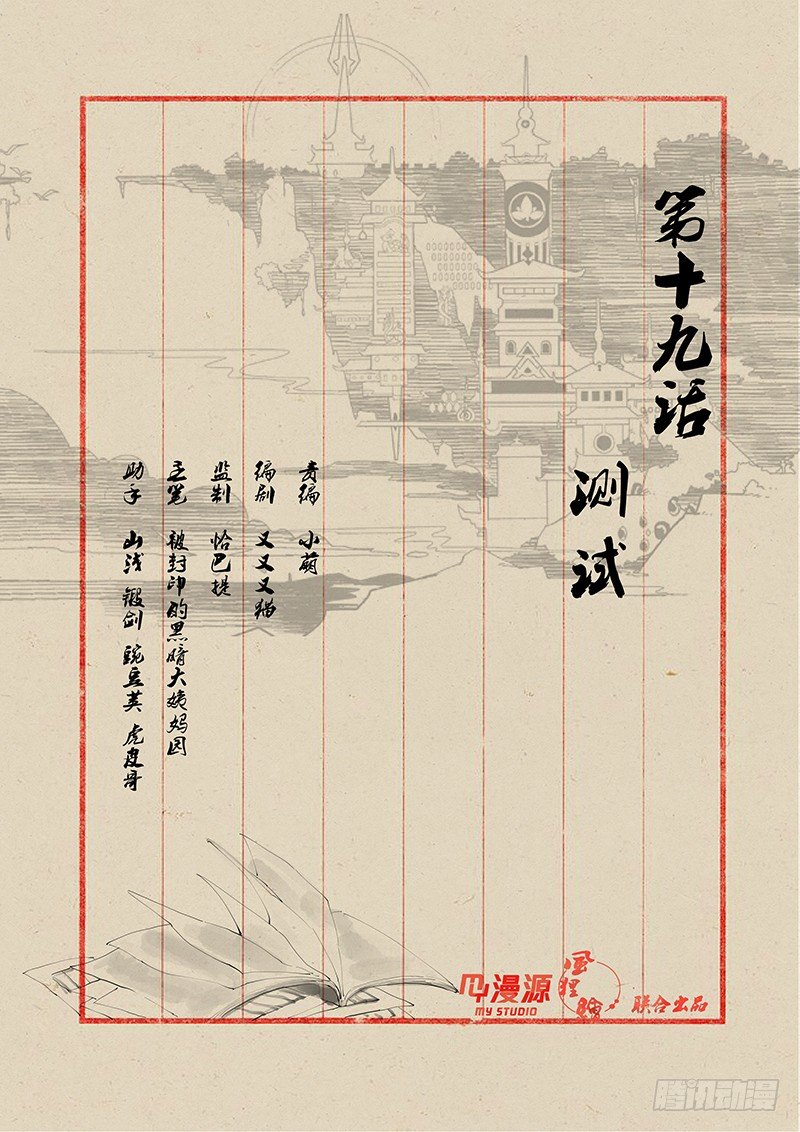 第十九话
测试
责编 小萌
编剧 又又又猫
监制 恰巴提
主笔 被封印的黑暗大姨妈园
助手 山浅 锻剑 豌豆荚 虎皮哥
漫源
MY STUDIO
联合出品
腾讯动漫